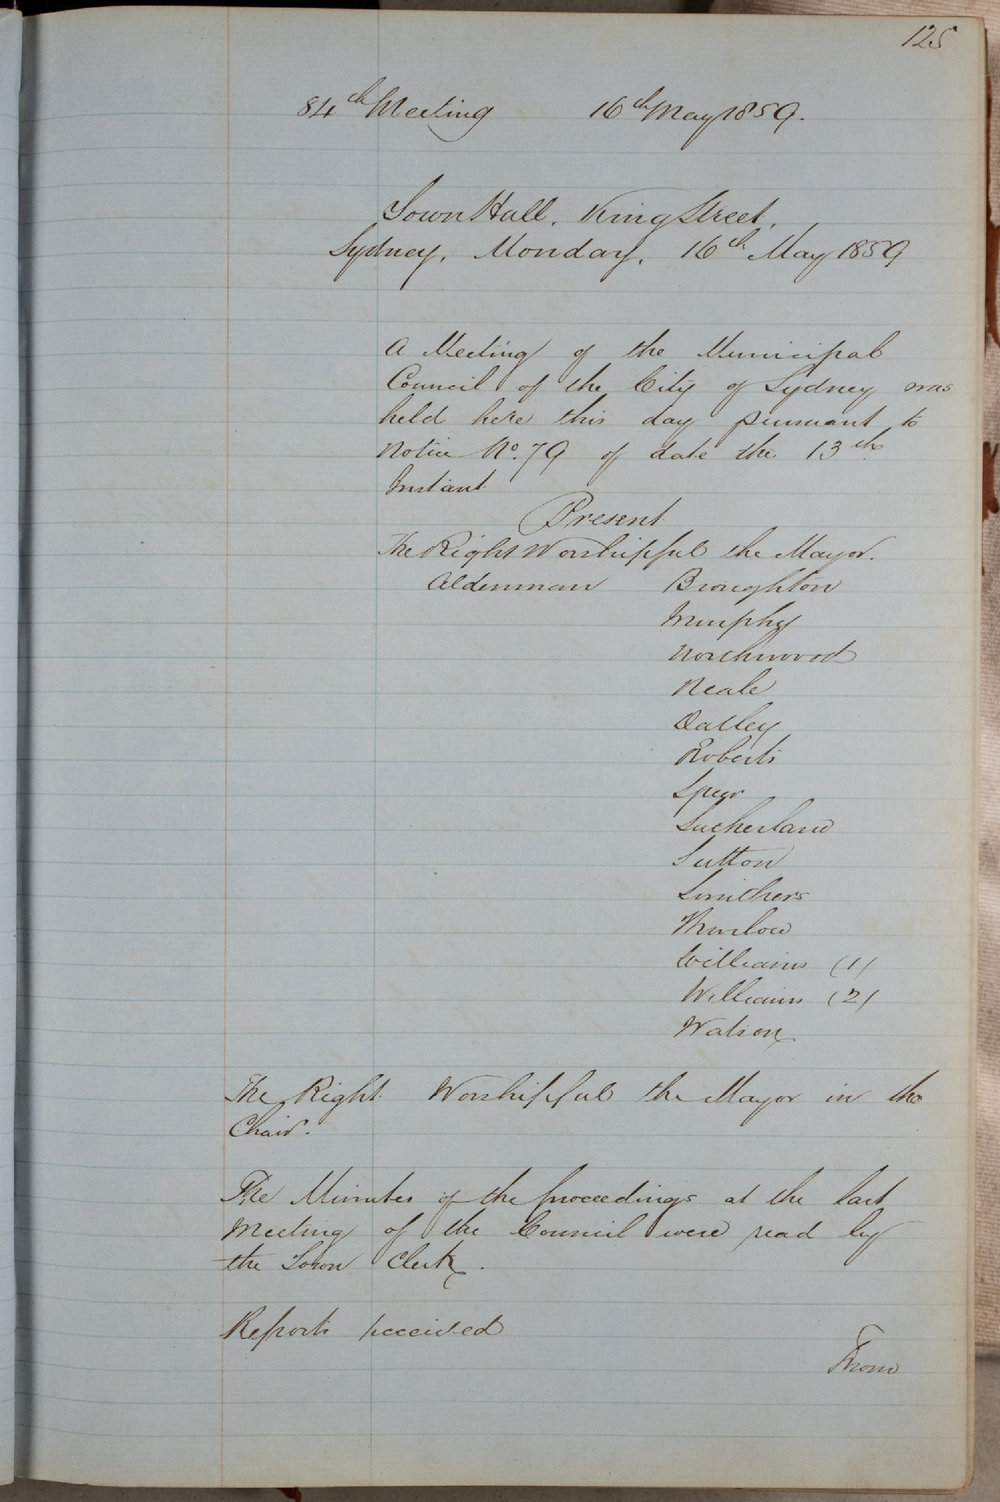 125
84th Meeting 16th May 1859.
Town Hall, King Street,
Sydney, Monday, 16th May 1859
A Meeting of the Municipal
Council of the City of Sydney was
held here this day pursuant to
Notice No. 79 of date the 13th
Instant
Present
The Right Worshipful the Mayor.
Alderman Broughton
Murphy
Northwood
Neale
Oatley
Roberts
Speer
Sutherland
Sutton
Smithers
Thurlow
Williams (1)
Williams (2)
Watson
The Right Worshipful the Mayor in the
Chair.
The Minutes of the proceedings at the last
Meeting of the Council were read by
the Town Clerk.
Reports received
From